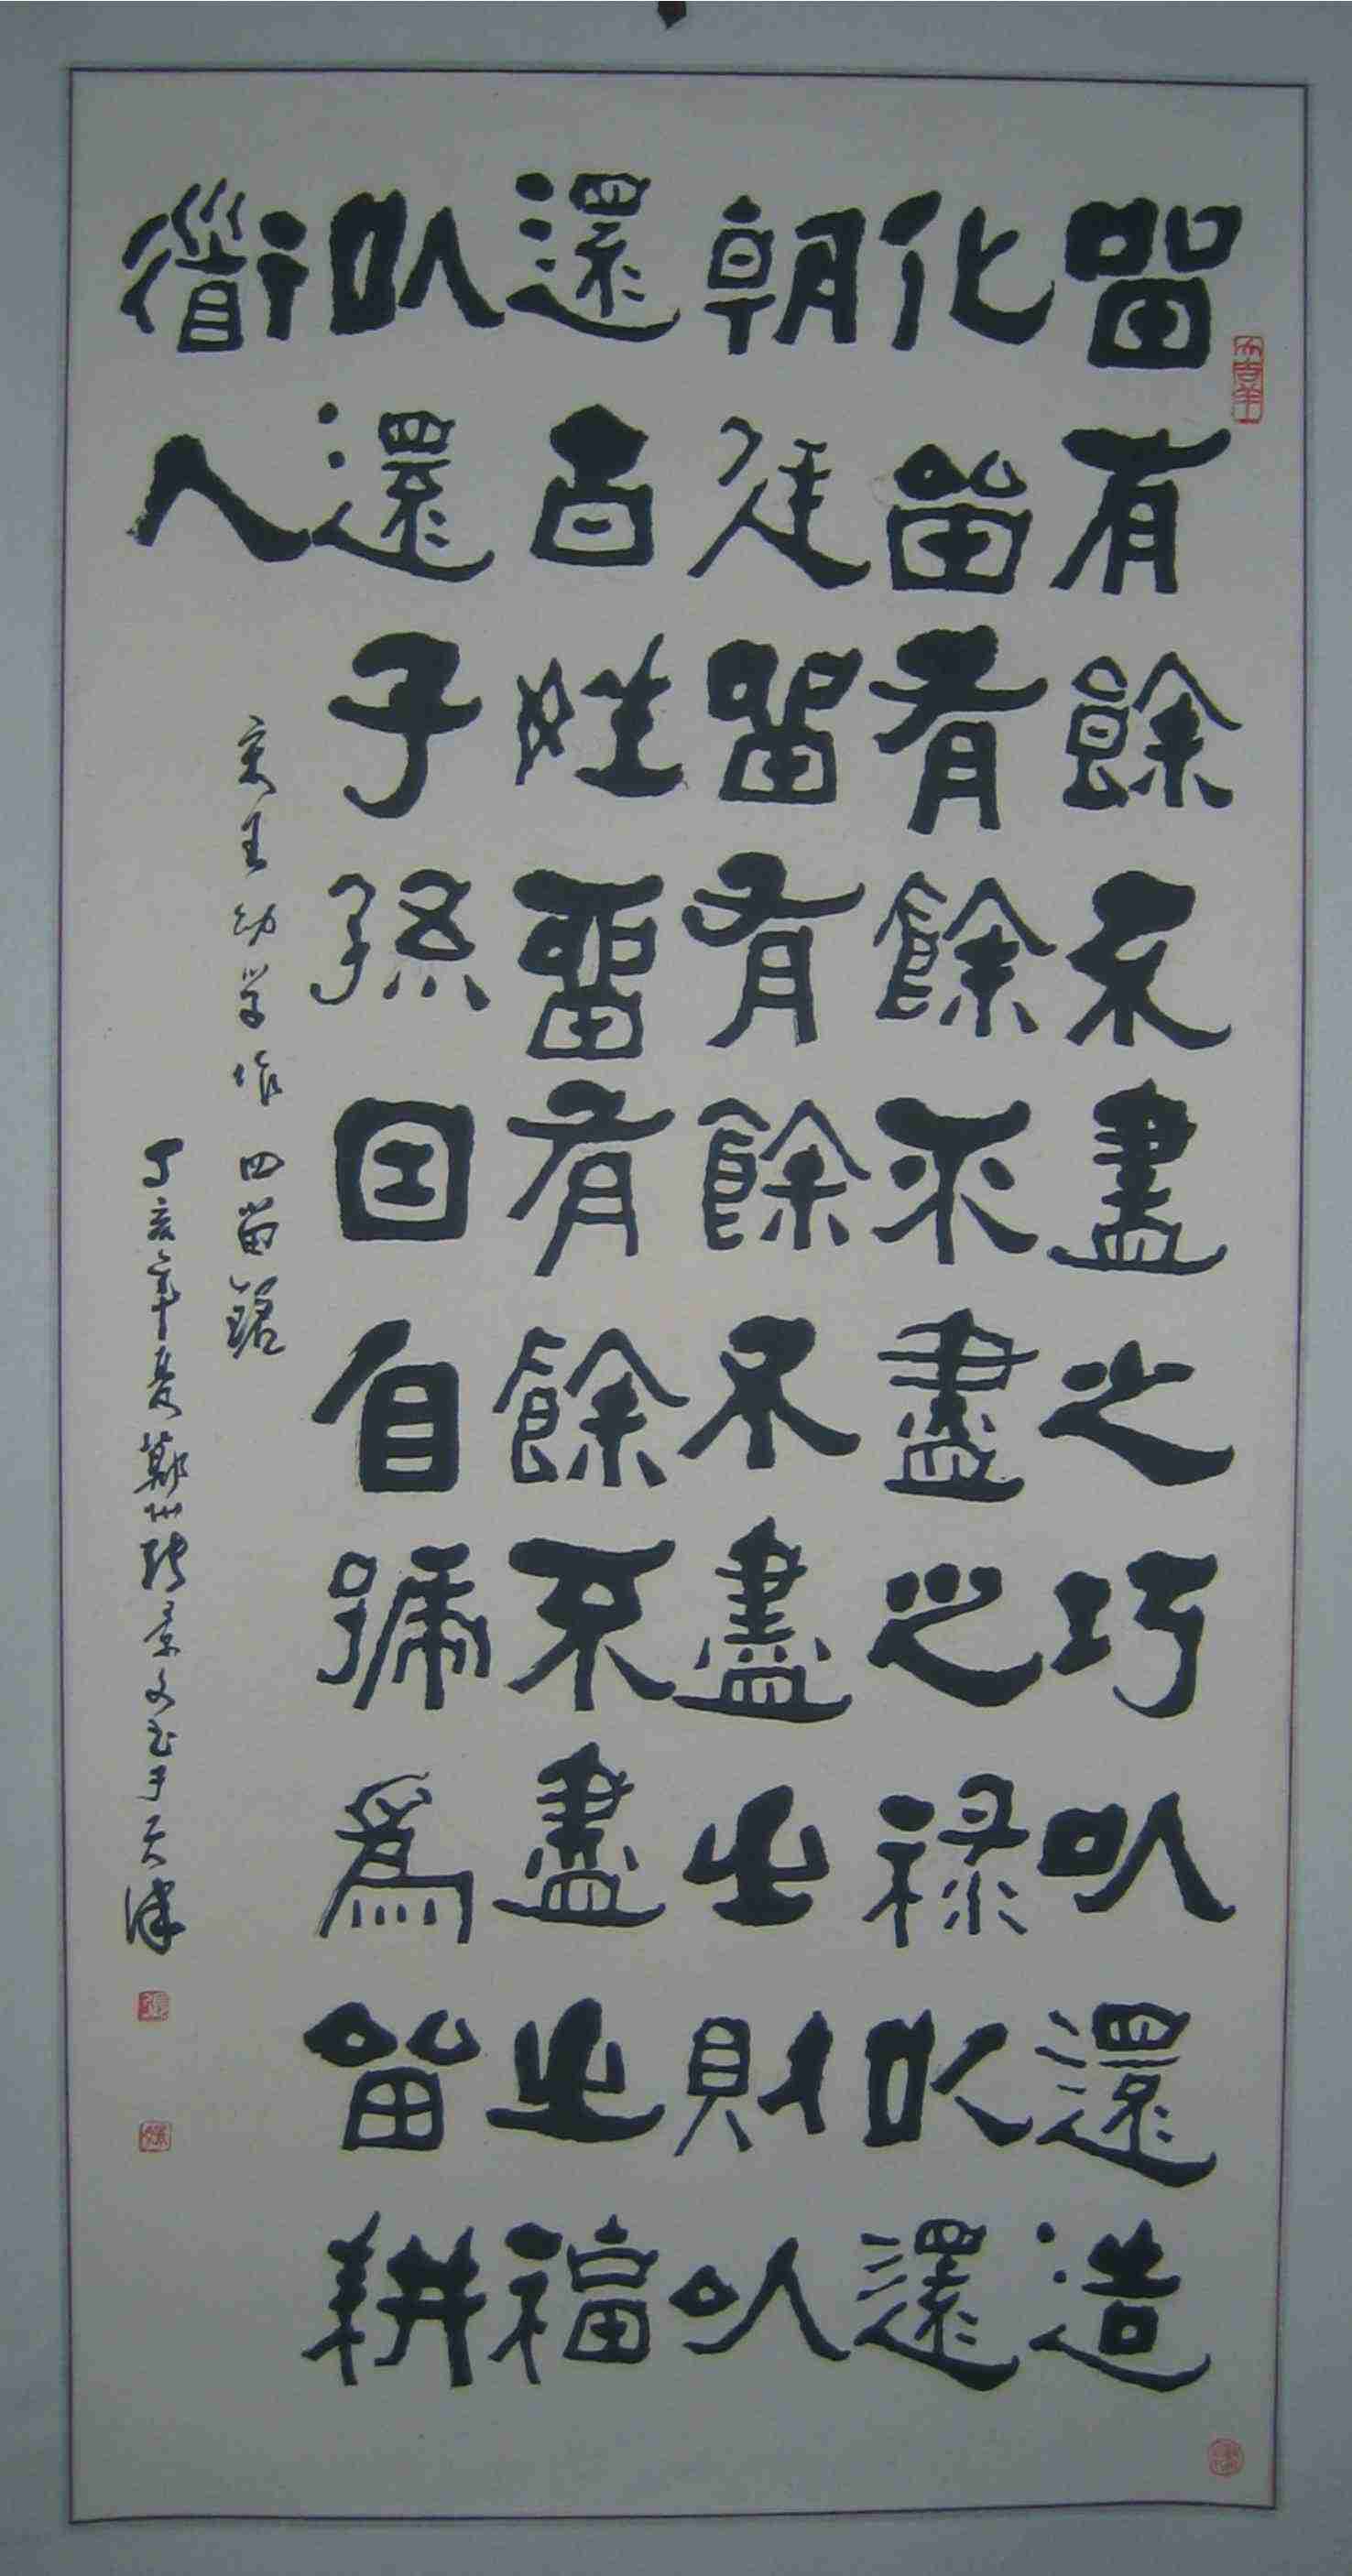 留有餘不盡之巧以還造
化留有餘不盡之祿以還
朝廷留有餘不盡之財以
還百姓留有餘不盡之福
以還子孫因自號為留耕
衜人
宋王幼學作 四留銘
丁亥年夏鄭州張景文書于天津